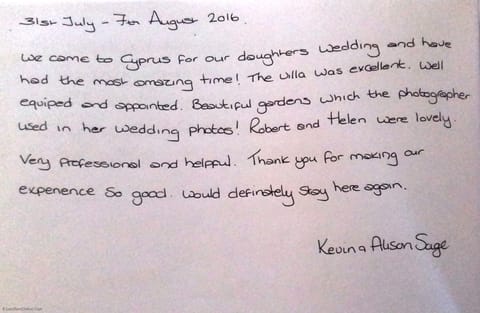 31st July - 7th August 2016.
We came to Cyprus for our daughters wedding and have
had the most amazing time! The villa was excellent. Well
equiped and appointed. Beautiful gardens which the photographer
used in her wedding photos! Robert and Helen were lovely.
Very professional and helpful. Thank you for making our
experience so good. Would definately stay here again.
Kevin & Alison Sage